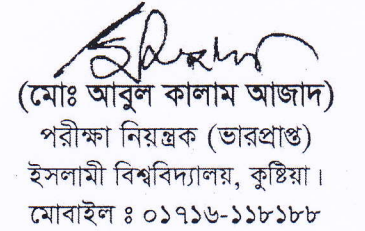 (মোঃ আবুল কালাম আজাদ)
পরীক্ষা নিয়ন্ত্রক (ভারপ্রাপ্ত)
ইসলামী বিশ্ববিদ্যালয়, কুষ্টিয়া ।
মোবাইল ঃ ০১৭১৬-১১৮১৮৮